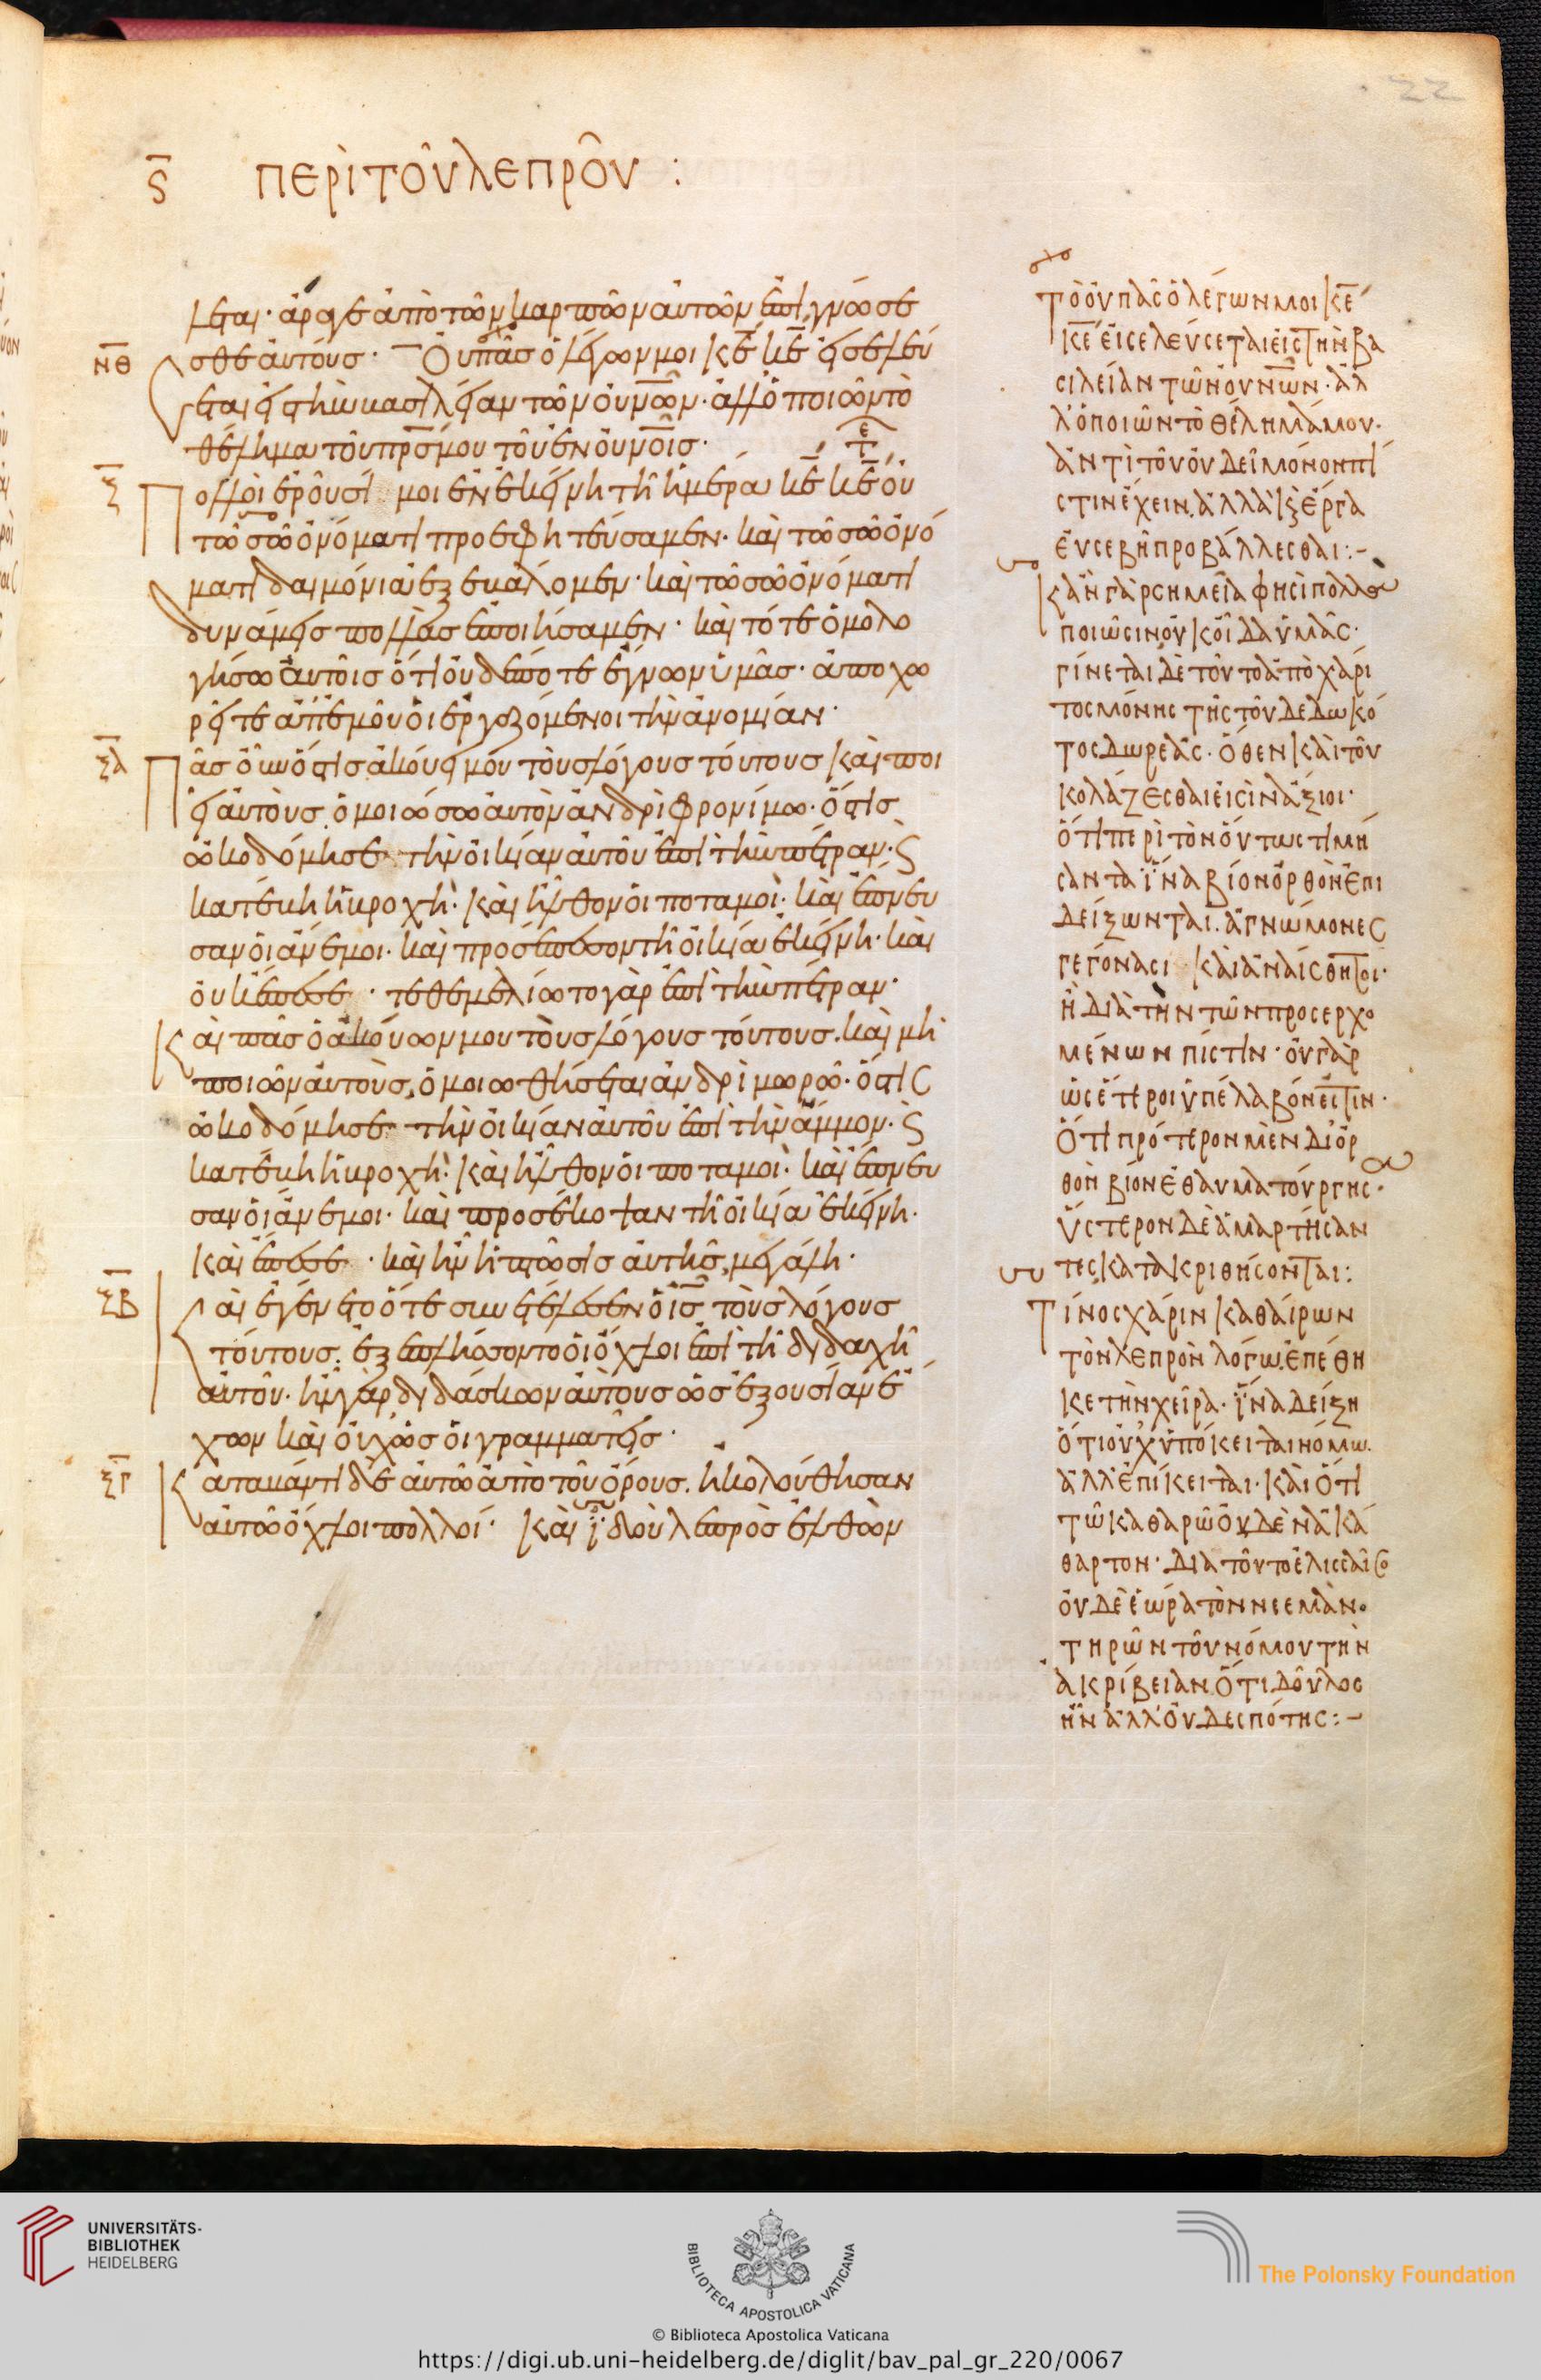 22
ς̅ περὶ τοῦ λεπροῦ :
λεται· ἄραγε ἀπὸ τῶν καρπῶν αὐτῶν ἐπιγνώσε
ΝΘ σθε αὐτούς· Οὐ πᾶς ὁ λέγων μοι κε̅ κε̅ εἰσελεύ
σεται εἰς τὴν βασιλείαν τῶν οὐνω̅ν· ἀλλ' ὁ ποιῶν τὸ
θέλημα τοῦ πρσ̅ μου τοῦ ἐν οὐνοι̅ς·
Ξ̅ Πολλοὶ ἐροῦσί μοι ἐν ἐκείνη τῆ ἡμέρα κε̅ κε̅ οὐ
τῶ σῶ ὀνόματι προεφητεύσαμεν· καὶ τῶ σῶ ὀνό
ματι δαιμόνια ἐξεβάλομεν· καὶ τῶ σῶ ὀνόματι
δυνάμεις πολλὰς ἐποιήσαμεν· καὶ τότε ὁμολο
γήσω αὐτοῖς ὅτι οὐδέποτε ἔγνων ὑμᾶς· ἀποχω
ρεῖτε ἀπ' ἐμοῦ οἱ ἐργαζόμενοι τὴν ἀνομίαν·
ΞΑ Πᾶς οὖν ὅστις ἀκούει μου τοὺς λόγους τούτους καὶ ποι
εῖ αὐτοὺς. ὁμοιώσω αὐτὸν ἀνδρὶ φρονίμω· ὅστις
ὠκοδόμησε τὴν οἰκίαν αὐτοῦ ἐπὶ τὴν πέτραν· ϛ
κατέβη ἡ βροχὴ· καὶ ἦλθον οἱ ποταμοὶ· καὶ ἔπνευ
σαν οἱ ἄνεμοι· καὶ προσέπεσον τῆ οἰκία ἐκείνη· καὶ
οὐκ ἔπεσε· τεθεμελίωτο γὰρ ἐπὶ τὴν πέτραν·
Καὶ πᾶς ὁ ἀκούων μου τοὺς λόγους τούτους. καὶ μὴ
ποιῶν αὐτοὺς, ὁμοιωθήσεται ἀνδρὶ μωρῶ· ὅστις
ὠκοδόμησε τὴν οἰκίαν αὐτοῦ ἐπὶ τὴν ἄμμον· ϛ
κατέβη ἡ βροχὴ· καὶ ἦλθον οἱ ποταμοὶ· καὶ ἔπνευ
σαν οἱ ἄνεμοι· καὶ προσέκοψαν τῆ οἰκία ἐκείνη·
καὶ ἔπεσε· καὶ ἦν ἡ πτῶσις αὐτῆς, μεγάλη·
ΞΒ Καὶ ἐγένετο ὅτε συνετέλεσεν ὁ ισ̅ τοὺς λόγους
τούτους. ἐξεπλήσσοντο οἱ ὄχλοι ἐπὶ τῆ διδαχῆ
αὐτοῦ· ἦν γὰρ διδάσκων αὐτοὺς ὡς ἐξουσίαν ἔ
χων καὶ οὐχ ὡς οἱ γραμματεῖς·
ΞΓ Καταβάντι δὲ αὐτῶ ἀπὸ τοῦ ὄρους. ἠκολούθησαν
αὐτῶ ὄχλοι πολλοί· Καὶ ἰδοὺ λεπρὸς ἐλθὼν
Τὸ οὐ πᾶς ὁ λέγων μοι κε̅
κε̅ εἰσελεύσεται εἰς τὴν βα
σιλείαν τῶν οὐνω̅ν· ἀλ
λ' ὁ ποιῶν τὸ θέλημά μου·
ἀντὶ τοῦ οὐ δεῖ μόνον πί
στιν ἔχειν. ἀλλὰ καὶ ἔργα
εὐσεβῆ προβάλλεσθαι:–
Κἂν γὰρ σημεῖα φησὶ πολλὰ
ποιῶσιν οὐκ οἶδα ὑμᾶς·
γίνεται δὲ τοῦτο ἀπὸ χάρι
τος μόνης τῆς τοῦ δεδωκό
τος δωρεᾶς· ὅθεν καὶ τοῦ
κολάζεσθαι εἰσὶν ἄξιοι·
ὅτι περὶ τὸν οὕτως τιμή
σαντα ἵνα βίον ὀρθὸν ἐπι
δείξωνται. ἀγνώμονες
γεγόνασι καὶ ἀναίσθητοι·
ἢ διὰ τὴν τῶν προσερχο
μένων πίστιν· οὐ γὰρ
ὡς ἕτεροι ὑπέλαβόν ἐστιν·
ὅτι πρότερον μὲν δι' ὀρ
θὸν βίον ἐθαυματούργησ·
ὕστερον δὲ ἁμαρτήσαν
τες κατακριθήσονται:
Τίνος χάριν καθαίρων
τὸν λεπρὸν λόγω. ἐπέθη
κε τὴν χεῖρα· ἵνα δείξη
ὅτι οὐχ ὑπόκειται νόμω.
ἀλλ' ἐπίκειται· καὶ ὅτι
τῶ καθαρῶ οὐδὲν ἀκά
θαρτον· διατοῦτο ἐλισσαῖο
οὐδὲ ἑώρα τὸν νεεμὰν·
τηρῶν τοῦ νόμου τὴν
ἀκρίβειαν. ὅτι δοῦλος
ἦν ἀλλ' οὐ δεσπότης:–
UNIVERSITÄTS-
BIBLIOTHEK
HEIDELBERG
BIBLIOTECA APOSTOLICA VATICANA
The Polonsky Foundation
© Biblioteca Apostolica Vaticana
https://digi.ub.uni-heidelberg.de/diglit/bav_pal_gr_220/0067